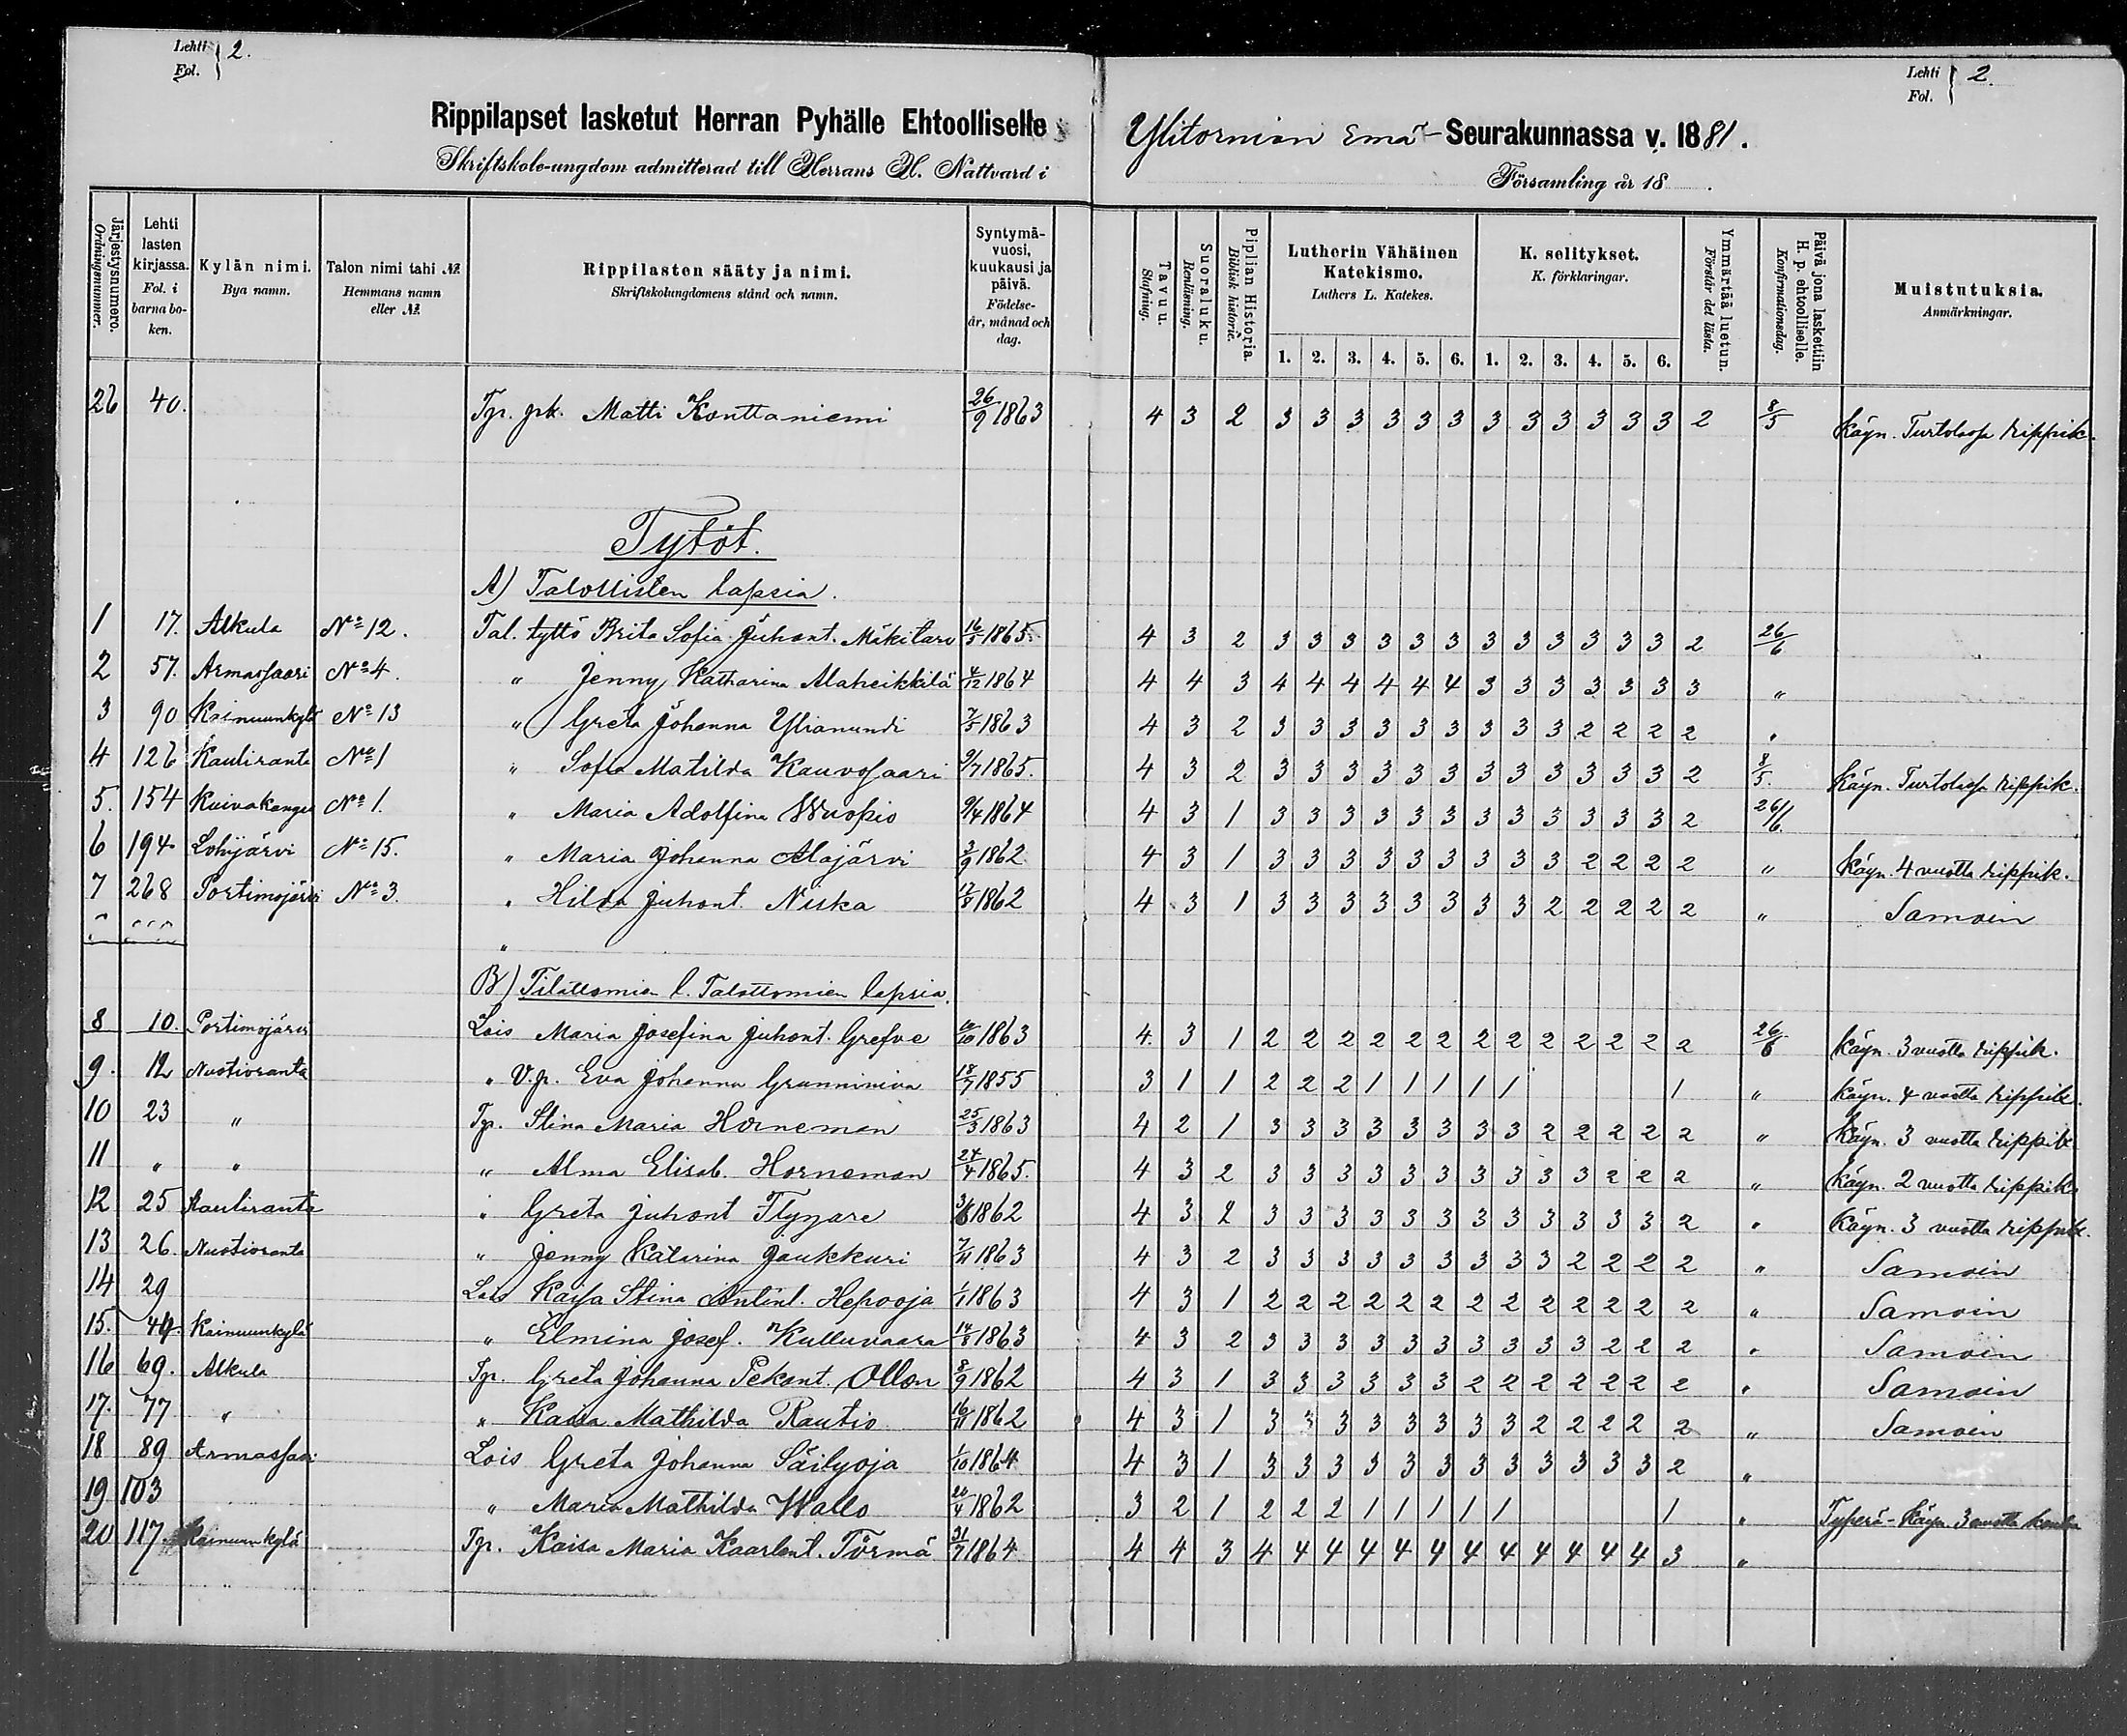 Lehti Fol. } 2.
Lehti Fol. } 2.
Rippilapset lasketut Herran Pyhälle Ehtoolliselle Ylitornion Emä-Seurakunnassa v. 1881.
Skriftskolo-ungdom admitterad till Herrans H. Nattvard i Församling år 18 .
Järjestysnumero. Ordningsnummer.
Lehti lasten kirjassa. Fol. i barnaboken.
Kylän nimi. Bya namn.
Talon nimi tahi №. Hemmans namn eller №.
Rippilasten sääty ja nimi. Skriftskolungdomens stånd och namn.
Syntymävuosi, kuukausi ja päivä. Födelseår, månad och dag.
Tavuu. Stafning.
Suoraluku. Renläsning.
Piplian Historia. Biblisk historie.
Lutherin Vähäinen Katekismo. Luthers L. Katekes. 1. 2. 3. 4. 5. 6.
K. selitykset. K. förklaringar. 1. 2. 3. 4. 5. 6.
Ymmärtää luetun. Förstår det lästa.
Päivä jona laskettiin H. p. ehtoolliselle. Konfirmationsdag.
Muistutuksia. Anmärkningar.
26 40. Tp. pk. Matti Konttaniemi 26/9 1863 4 3 2 3 3 3 3 3 3 3 3 3 3 3 3 2 8/5 Käyn. Turtolassa rippik.
Tytöt.
A) Talollisten lapsia.
1 17. Alkula No 12. Tal. tyttö Brita Sofia Juhont. Mäkitaro 16/5 1865. 4 3 2 3 3 3 3 3 3 3 3 3 3 3 3 2 26/6
2 57. Armassaari No 4. " Jenny Katharina Alaheikkilä 4/12 1864 4 4 3 4 4 4 4 4 4 3 3 3 3 3 3 3 "
3 90 Kainuunkylä No 13 " Greta Johanna Ylianundi 7/5 1863 4 3 2 3 3 3 3 3 3 3 3 3 2 2 2 2 "
4 126 Kauliranta No 1 " Sofia Matilda Kauvosaari 9/7 1865. 4 3 2 3 3 3 3 3 3 3 3 3 3 3 3 2 8/5. Käyn. Turtolassa rippik.
5. 154 Kuivakangas No 1. " Maria Adolfina Wuopio 9/4 1864 4 3 1 3 3 3 3 3 3 3 3 3 3 3 3 2 26/6.
6 194 Lohijärvi No 15. " Maria Johanna Alajärvi 3/9 1862. 4 3 1 3 3 3 3 3 3 3 3 3 2 2 2 2 " Käyn. 4 vuotta rippik.
7 268 Portimojärvi No 3. " Hilda Juhont. Niska 17/8 1862 4 3 1 3 3 3 3 3 3 3 3 2 2 2 2 2 " Samoin
"
B) Tilattomien l. Talottomien lapsia.
8 10. Portimojärvi Lois Maria Josefina Juhont. Grefve 10/10 1863 4. 3 1 2 2 2 2 2 2 2 2 2 2 2 2 2 26/6 Käyn. 3 vuotta rippik.
9. 12 Nuotioranta " V.p. Eva Johanna Granniniva 18/7 1855 3 1 1 2 2 2 1 1 1 1 1 1 " Käyn. 4 vuotta rippik.
10 23 " Tp. Stina Maria Horneman 25/3 1863 4 2 1 3 3 3 3 3 3 3 3 2 2 2 2 2 " Käyn. 3 vuotta rippik.
11 " " " Alma Elisab. Horneman 24/4 1865. 4 3 2 3 3 3 3 3 3 3 3 3 3 2 2 2 " Käyn. 2 vuotta rippik.
12 25 Kauliranta " Greta Juhont Flygare 3/6 1862 4 3 2 3 3 3 3 3 3 3 3 3 3 3 3 2 " Käyn. 3 vuotta rippik.
13 26. Nuotioranta " Jenny Katarina Jaukkuri 7/11 1863 4 3 2 3 3 3 3 3 3 3 3 3 2 2 2 2 " Samoin
14 29 Lois Kajsa Stina Antint. Hepooja 1/1 1863 4 3 1 2 2 2 2 2 2 2 2 2 2 2 2 2 " Samoin
15. 44. Kainuunkylä " Elmina Josef. Kulluvaara 14/8 1863 4 3 2 3 3 3 3 3 3 3 3 3 3 2 2 2 " Samoin
16 69. Alkula Tp. Greta Johanna Pekant. Ollon 8/9 1862 4 3 1 3 3 3 3 3 3 2 2 2 2 2 2 2 " Samoin
17. 77 " " Kaisa Mathilda Rautio 16/11 1862 4 3 1 3 3 3 3 3 3 3 3 2 2 2 2 2 " Samoin
18 89 Armassaari Lois Greta Johanna Säilyoja 1/10 1864 4 3 1 3 3 3 3 3 3 3 3 3 3 3 3 2 "
19 103 " Maria Mathilda Wallo 20/4 1862 3 2 1 2 2 2 1 1 1 1 1 1 " Typerä - Käyn 3 vuotta koulua
20 117 Kainuunkylä Tp. Kaisa Maria Kaarlent. Törmä 31/7 1864 4 4 3 4 4 4 4 4 4 4 4 4 4 4 4 3 "